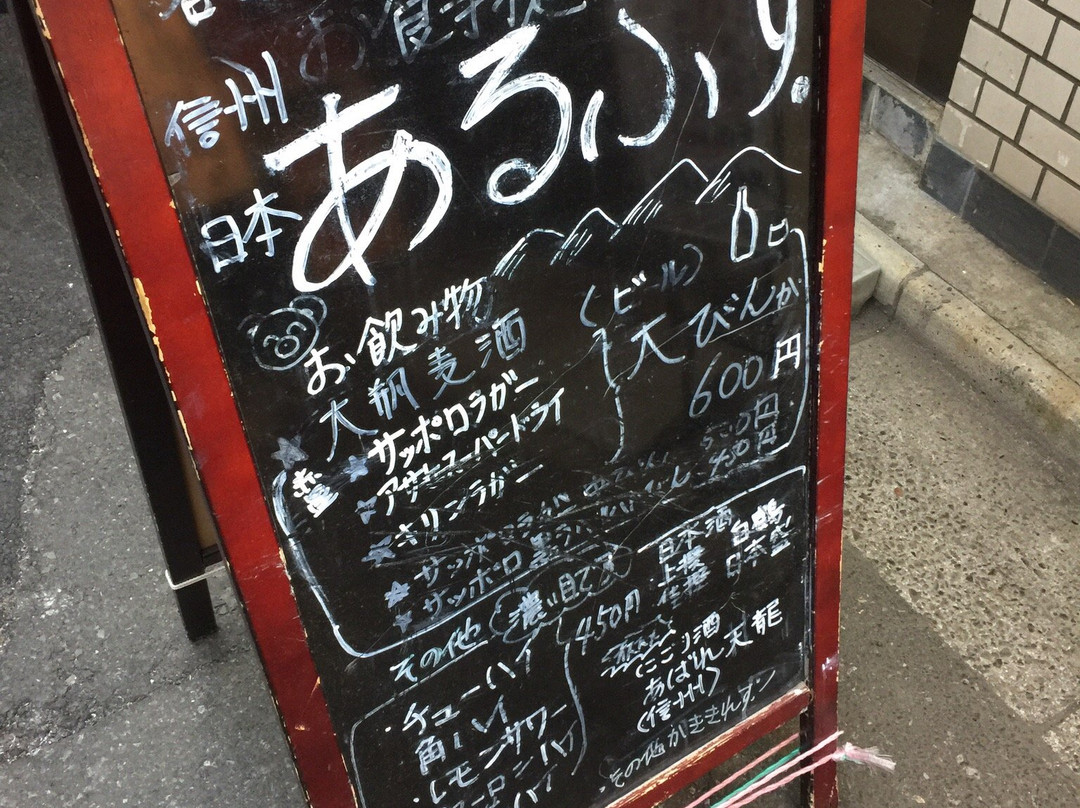 お食事処
信州
日本
あるぷす
お飲み物
(ビール)
大瓶麦酒
大びんが
600円
★サッポロラガー
★アサヒスーパードライ
★キリンラガー
★サッポロラガー
500円
★サッポロ黒ラベル
450円
その他
濃い目です
450円
・チューハイ
・角ハイ
・レモンサワー
ハイ
日本酒
白鶴
日本盛
にごり酒
あばれ天龍
(信州)
・その他